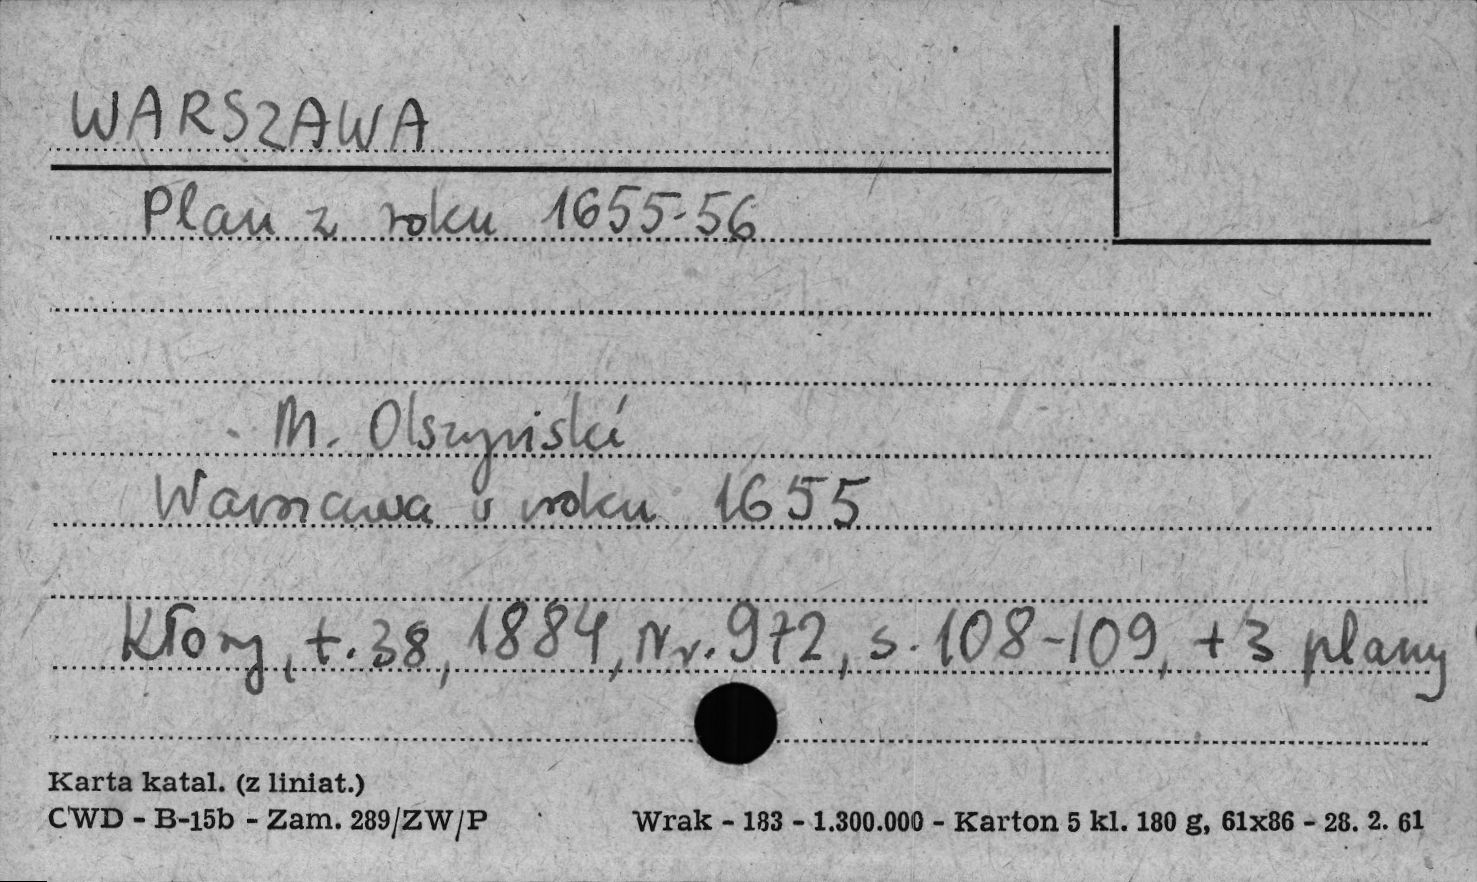 WARSZAWA
Plan z roku 1655-56
M. Olszyński
Warszawa w roku 1655
Kłosy, t. 38, 1884, Nr. 972, s. 108-109, + 3 plany
Karta katal. (z liniat.)
CWD - B-15b - Zam. 289/ZW/P Wrak - 183 - 1.300.000 - Karton 5 kl. 180 g, 61x86 - 28. 2. 61